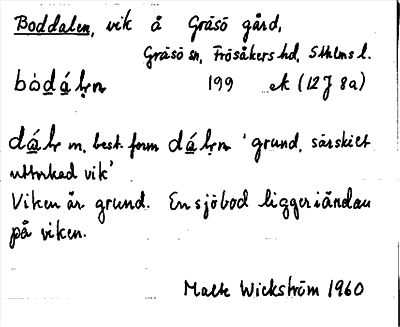 Boddalen, vik å Gräsö gård,
Gräsö sn, Frösåkers hd, Sthlms l.
bòdálẹn 199 ek (12J 8a)
dálẹ m, best. form dálẹn 'grund, särskilt
uttorkad vik'
Viken är grund. En sjöbod ligger i ändan
på viken.
Malte Wickström 1960